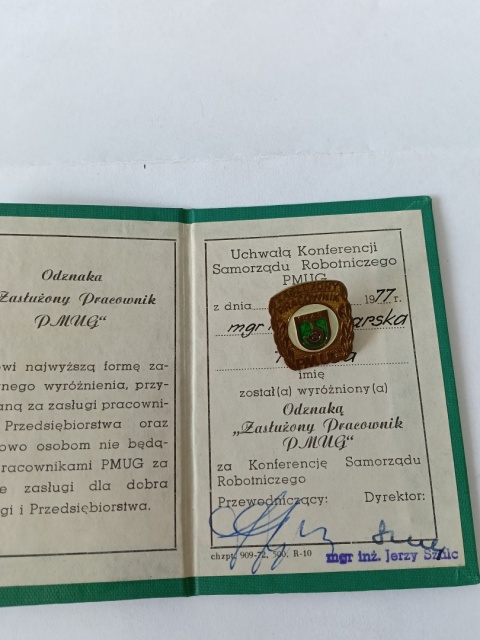 Odznaka
Zasłużony Pracownik
PMUG"
owi najwyższą formę za-
nego wyróżnienia, przy-
aną za zasługi pracowni-
Przedsiębiorstwa oraz
owo osobom nie będą-
racownikami PMUG za
e zasługi dla dobra
gi i Przedsiębiorstwa.
Uchwałą Konferencji
Samorządu Robotniczego
PMUG
z dnia 1977 r.
mgr arska
imię
został(a) wyróżniony(a)
Odznaką
„Zasłużony Pracownik
PMUG"
za Konferencję Samorządu
Robotniczego
Przewodniczący: Dyrektor:
chzpt. 909-72, 500, R-10
mgr inż. Jerzy